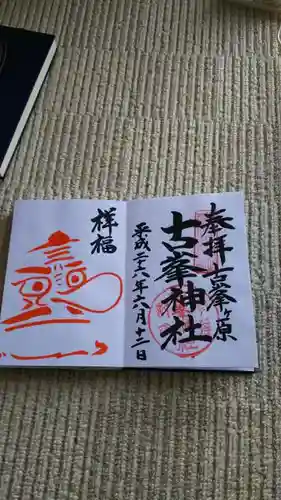 奉拝 古峯ヶ原
古峯神社
平成二十六年六月十二日
祥福